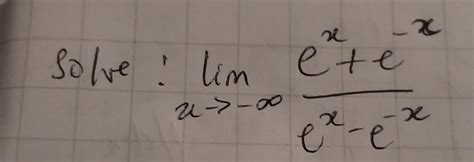 Solve : lim x→-∞ (e^x + e^-x) / (e^x - e^-x)